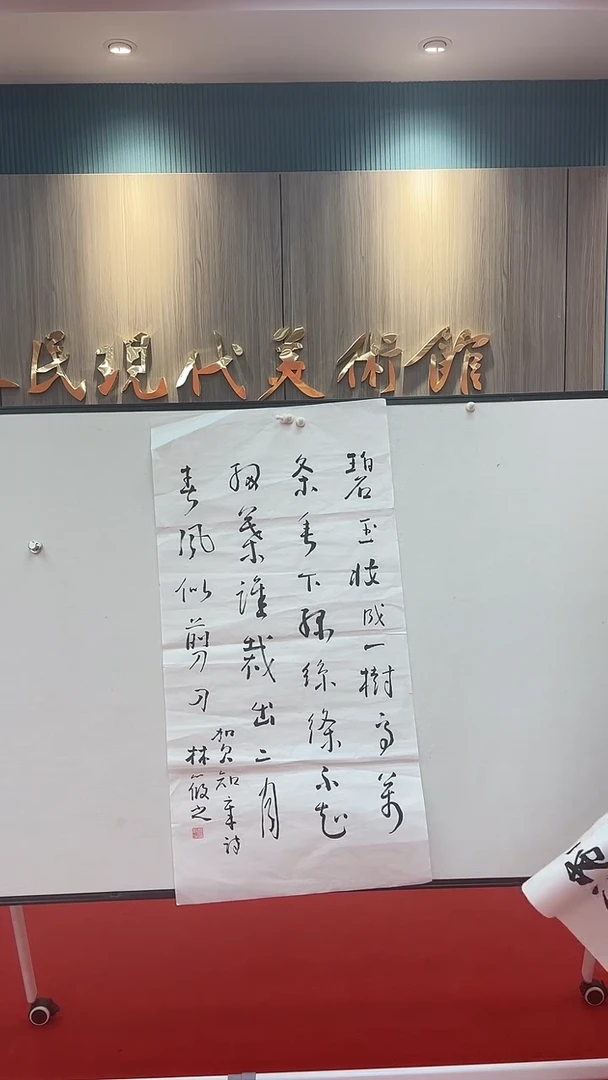 民現代美術館
碧玉妝成一樹高萬
条垂下綠絲縧不知
細葉誰裁出二月
春風似剪刀
賀知章詩
林筱之